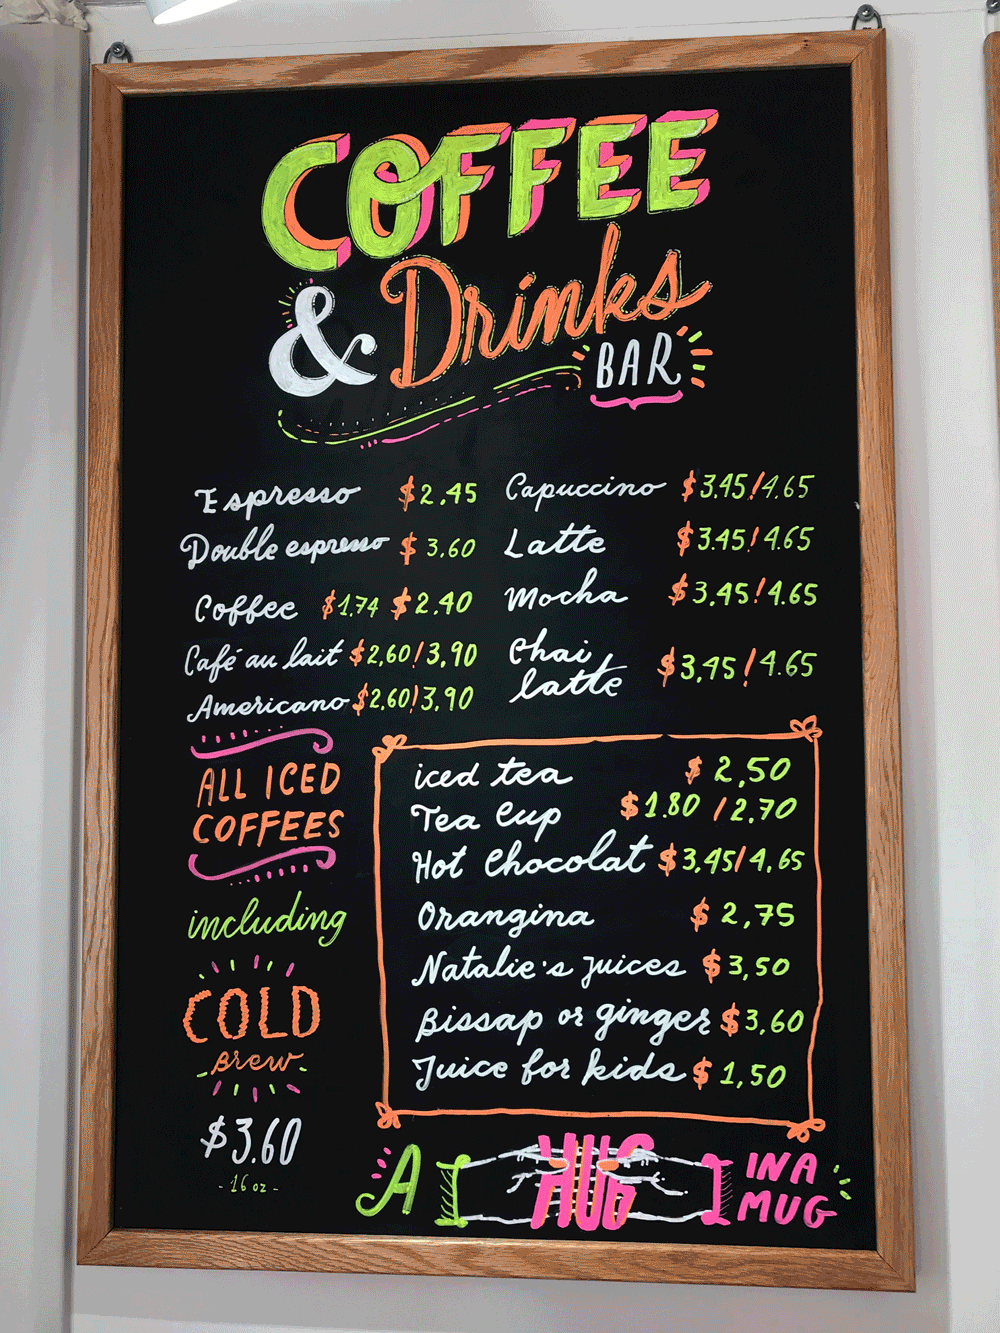 COFFEE
& Drinks
BAR
Espresso $2.45
Double espresso $3.60
Coffee $1.74 $2.40
Café au lait $2,60/3,90
Americano $2,60/3,90
Capuccino $3.45/4.65
Latte $3.45/4.65
Mocha $3.45/4.65
Chai
latte $3,45/4.65
ALL ICED
COFFEES
including
COLD
Brew
$3.60
- 16 oz -
iced tea $2,50
Tea Cup $1.80 /2.70
Hot Chocolat $3,45/4,65
Orangina $2,75
Natalie's juices $3,50
Bissap or ginger $3,60
Juice for kids $1,50
A HUG IN A
MUG